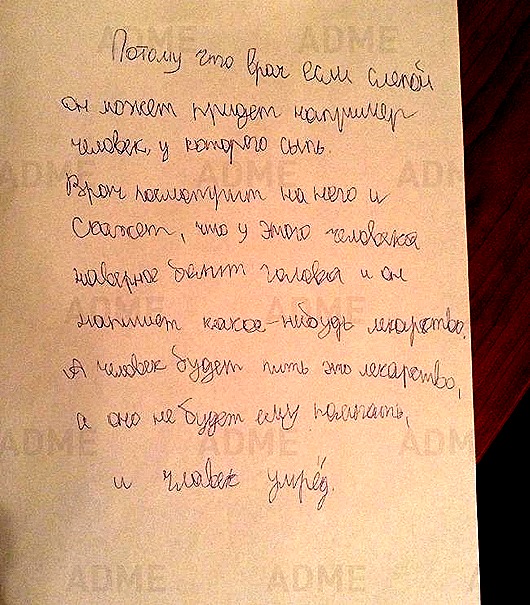 Потому что врач если слепой
он может придет например
человек, у которого сыпь.
Врач посмотрит на него и
скажет, что у этого человека
наверное болит головка и он
напишет какое-нибудь лекарство.
А человек будет пить это лекарство,
а оно не будет ему помагать,
и чловек умрёд.
ADME
ADME
ADME
ADME
ADME
ADME
ADME
ADME
ADME
ADME
ADME
ADME